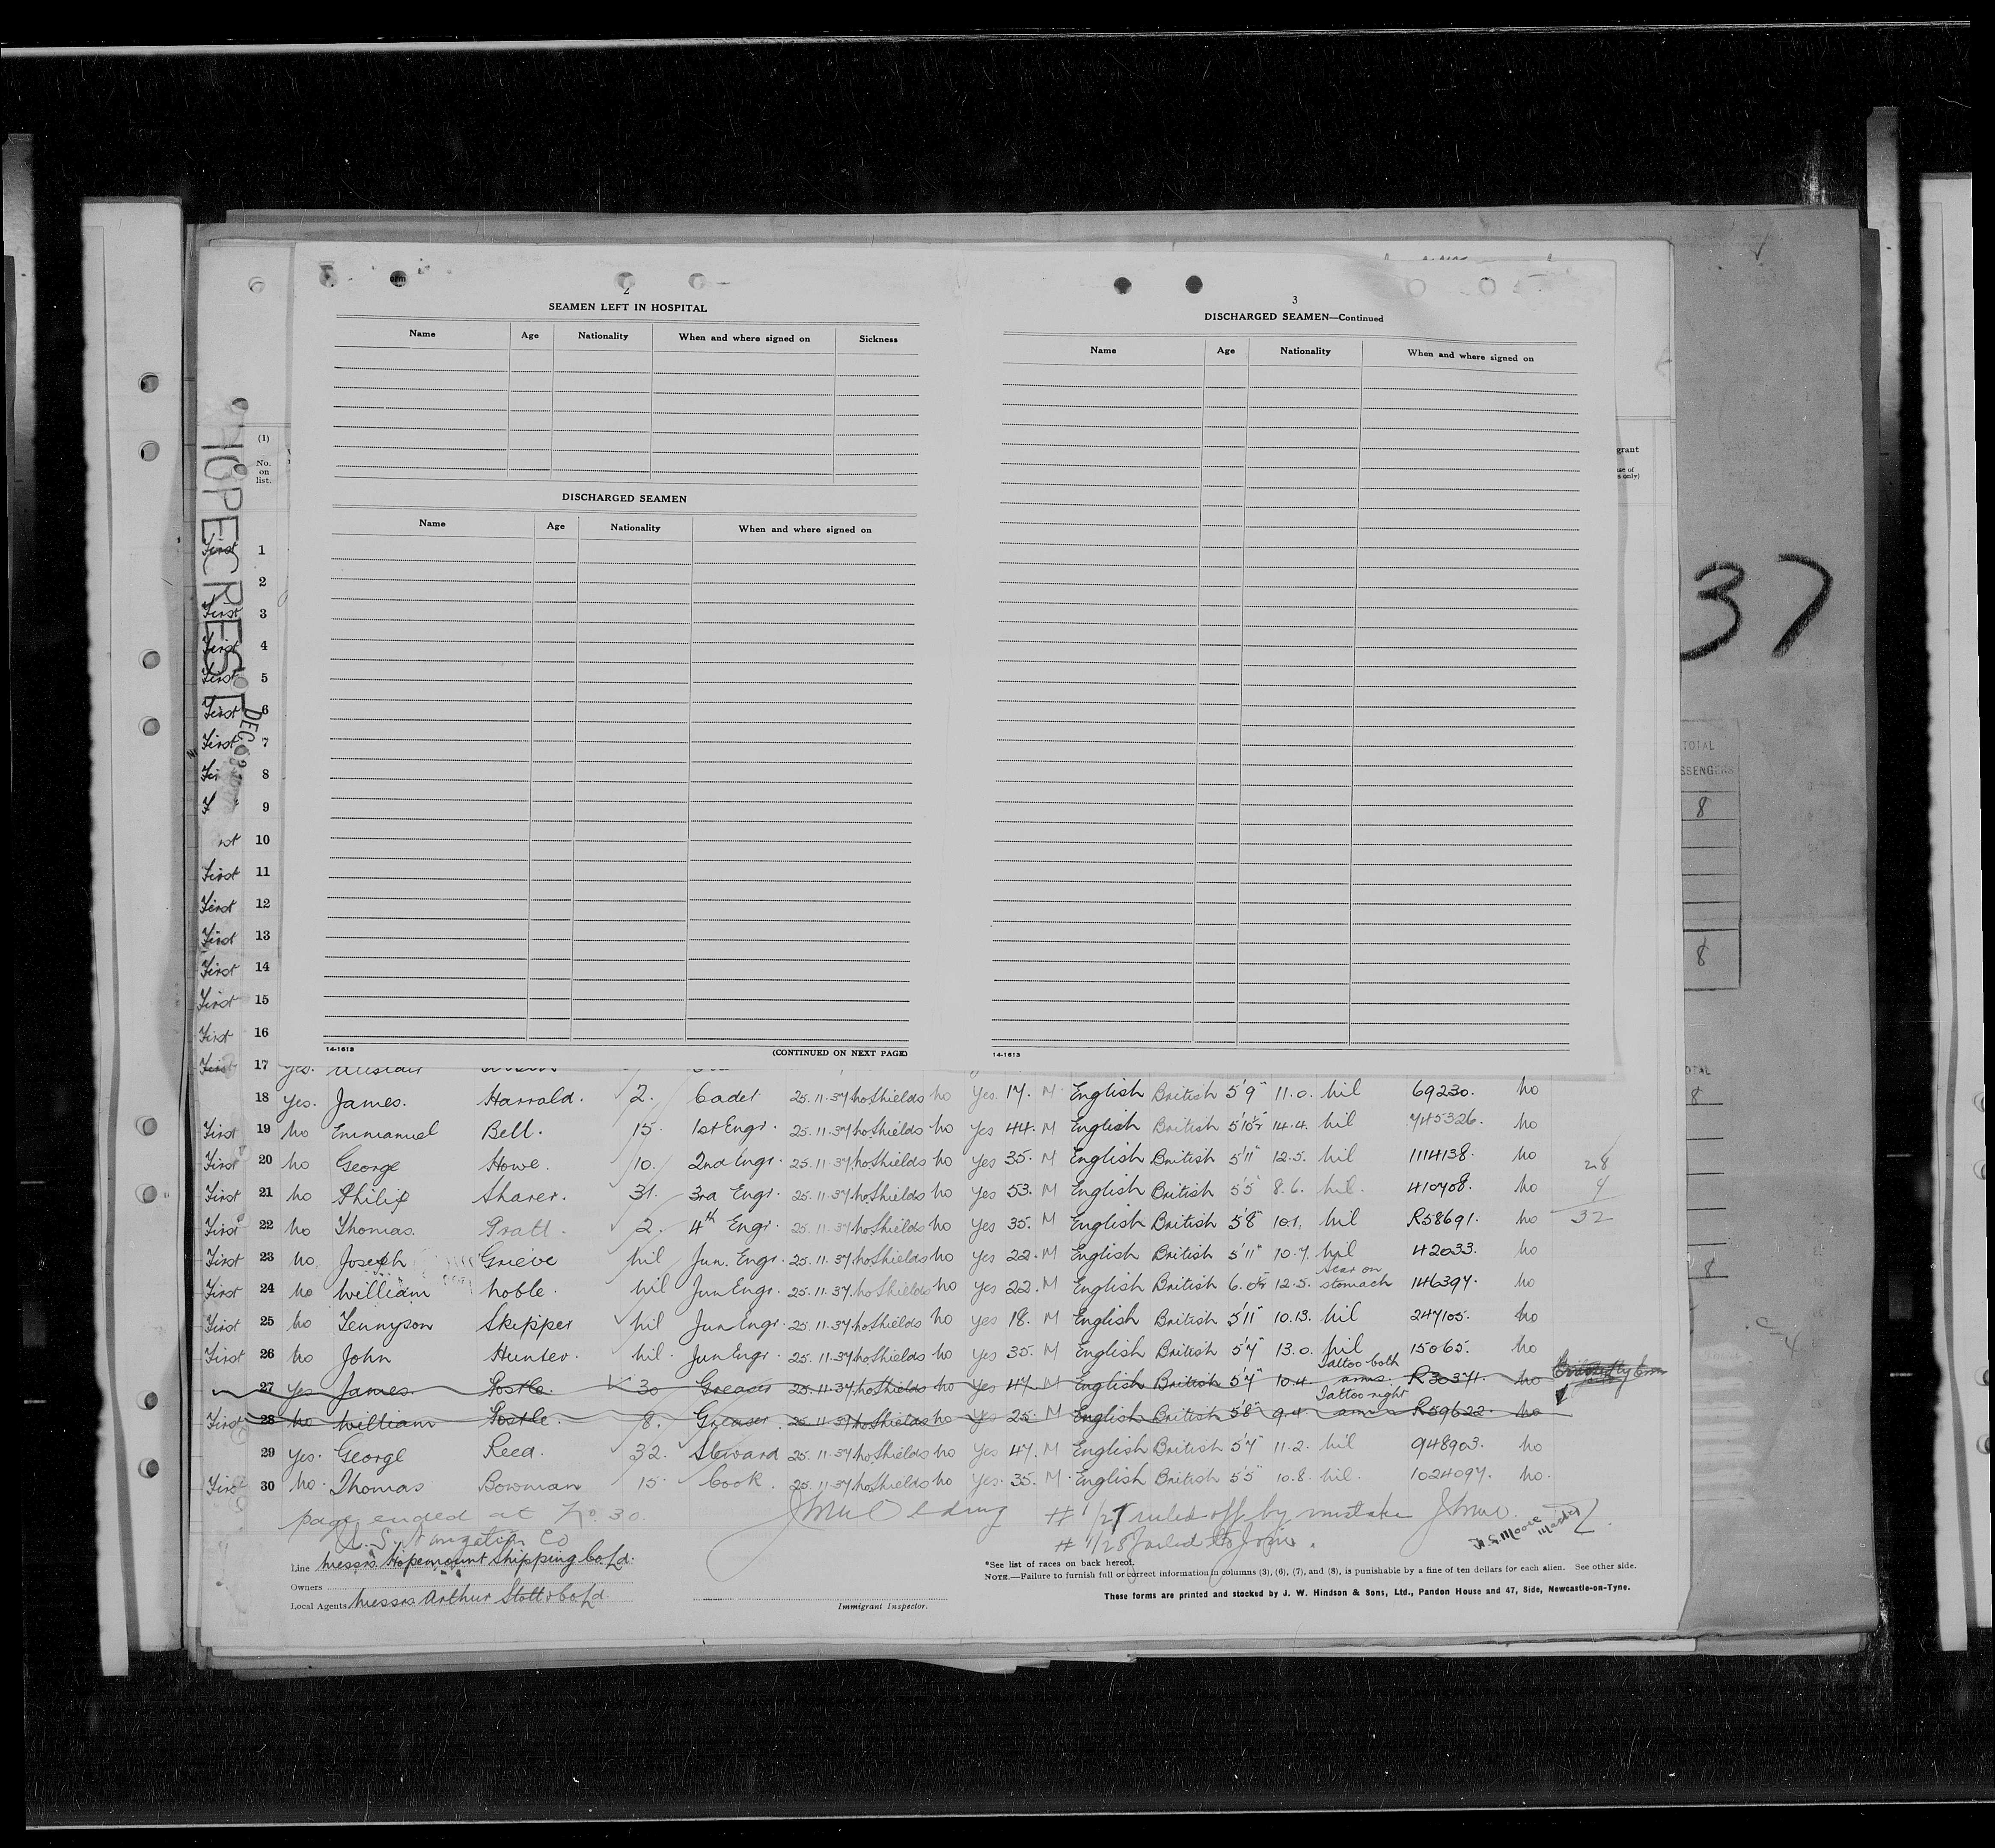 2
SEAMEN LEFT IN HOSPITAL
Name Age Nationality When and where signed on Sickness
DISCHARGED SEAMEN
Name Age Nationality When and where signed on
14-1613 (CONTINUED ON NEXT PAGE)
3
DISCHARGED SEAMEN—Continued
Name Age Nationality When and where signed on
14-1613
37
(1)
No. on list.
grant
only)
TOTAL
8
8
First 1
2
First 3
First 4
First 5
First 6
First 7
8
9
10
First 11
First 12
First 13
First 14
First 15
First 16
First 17 yes.
18 yes. James. Harrald. 2. Cadet 25.11.37 No Shields no yes. 17. M English British 5'9" 11.0. nil 69230. no
First 19 no Emmanuel Bell. 15. 1st Engr. 25.11.37 No Shields no yes 44. M English British 14.4. nil 745326. no
First 20 no George Howe. 10. 2nd Engr. 25.11.37 No Shields no yes 35. M English British 5'11" 12.5. nil 1114138. no
First 21 no Philip Sharer. 31. 3rd Engr. 25.11.37 No Shields no yes 53. M English British 5'5" 8.6. nil. 410708. no
First 22 no Thomas. Pratt. 2. 4th Engr. 25.11.37 No Shields no yes 35. M English British 5'8" 10.1. nil R58691. no
28
4
32
First 23 no Joseph Grieve nil Jun. Engr. 25.11.37 No Shields no yes 22. M English British 5'11" 10.7. nil 42033. no
First 24 no William Noble. nil Jun Engr. 25.11.37 No Shields no yes 22. M English British 12.5. scar on stomach 146397. no
First 25 no Tennyson Skipper nil Jun Engr. 25.11.37 No Shields no yes 18. M English British 5'11" 10.13. nil 247105. no
First 26 no John Hunter. nil. Jun Engr. 25.11.37 No Shields no yes 35. M English British 5'7" 13.0. nil 15065. no
27 yes James. Postle. 30 Greaser 25.11.37 No Shields no yes 47. M English British 5'7" 10.4 Tattoo both arms. R30371. no
First 28 no William Postle. 8. Greaser 25.11.37 No Shields no yes 25. M English British 5'8" 9.4. Tattoo right arm R59622. no
29 yes. George Reed. 32. Steward 25.11.37 No Shields no yes 47. M English British 5'7" 11.2. nil 948903. no
First 30 no. Thomas Bowman 15 Cook. 25.11.37 No Shields no yes. 35. M. English British 5'5" 10.8. nil. 1024097. no.
page ended at No. 30.
# 1/27 ruled off by mistake
# 1/28 failed to join.
H.G. Moore Master
Line Messrs. Hopemount Shipping Co Ld.
Owners
Local Agents Messrs Arthur Stott & Co Ld.
Immigrant Inspector.
*See list of races on back hereof.
NOTE.—Failure to furnish full or correct information in columns (3), (6), (7), and (8), is punishable by a fine of ten dollars for each alien. See other side.
These forms are printed and stocked by J. W. Hindson & Sons, Ltd., Pandon House and 47, Side, Newcastle-on-Tyne.